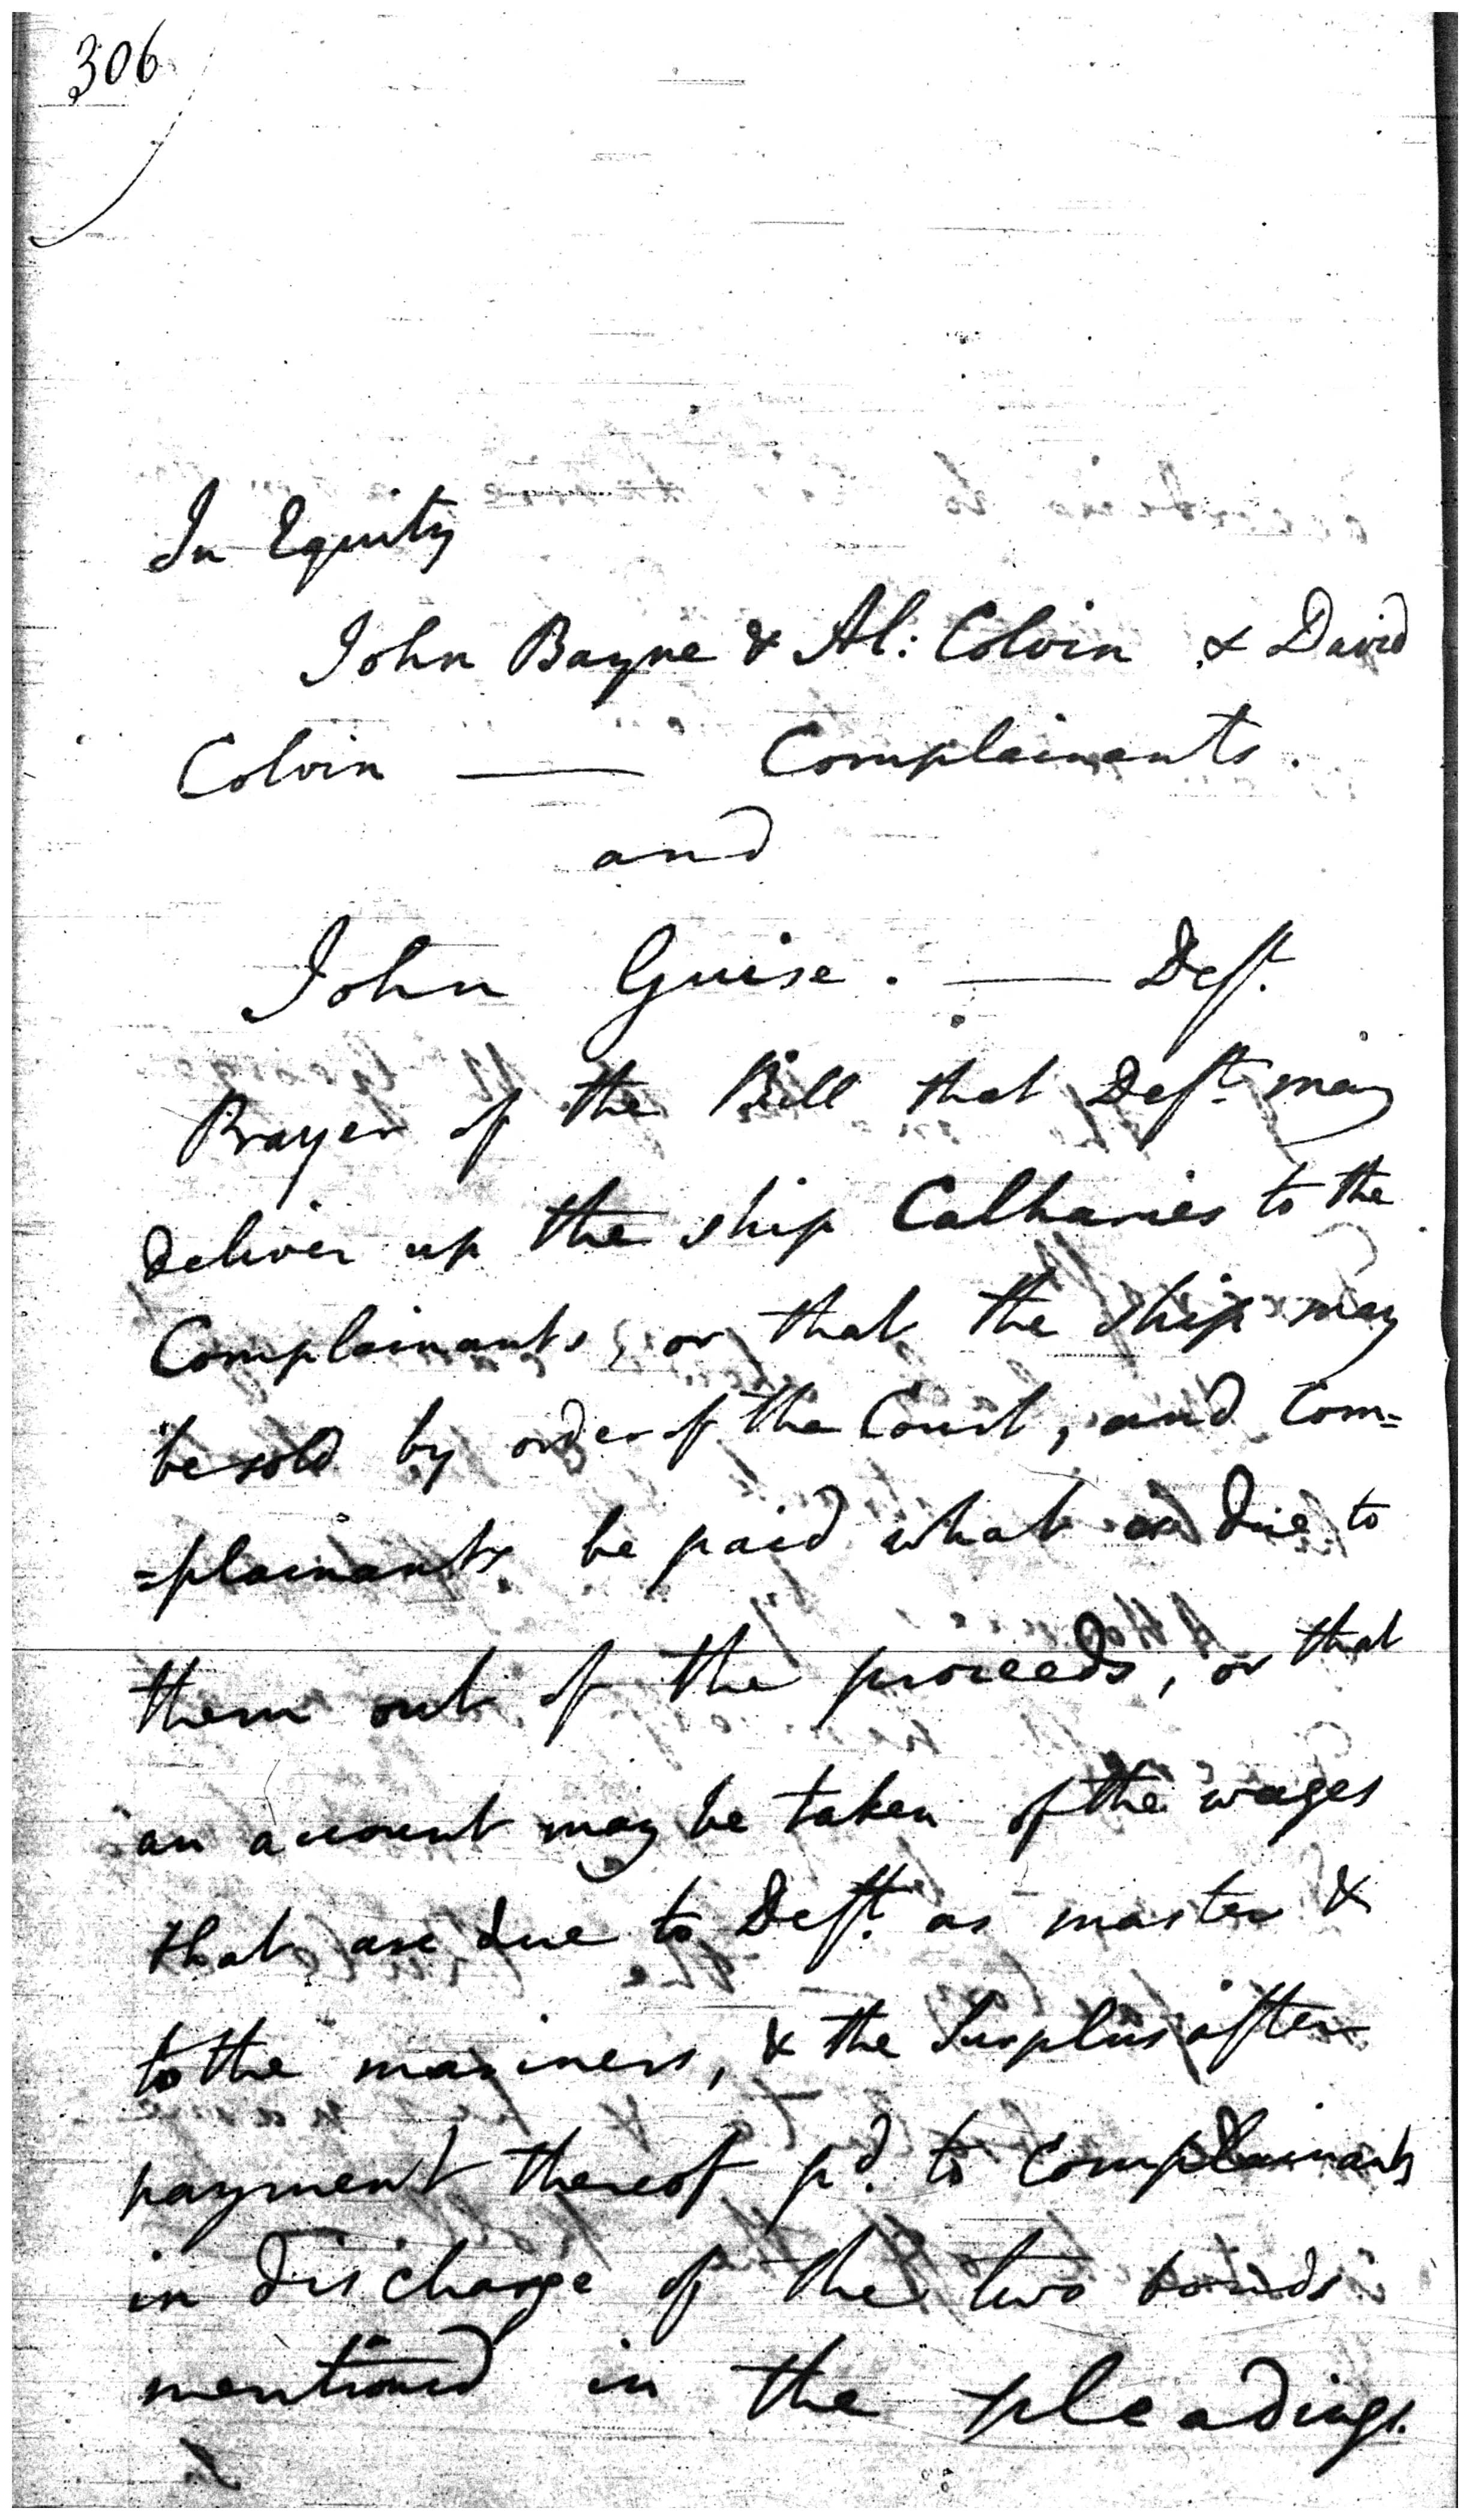 306
In Equity
John Bayne & Al: Colvin & David
Colvin — Complainants.
and
John Guise. — Deft.
Prayer of the Bill that Deft. may
deliver up the ship Catharies to the
Complainants, or that the ship may
be sold by order of the Court, and Com=
=plainants be paid what is due to
them out of the proceeds, or that
an account may be taken of the wages
that are due to Deft. as master &
to the mariners, & the Surplus after
payment thereof pd. to Complainants
in discharge of the two bonds
mentioned in the pleadings.